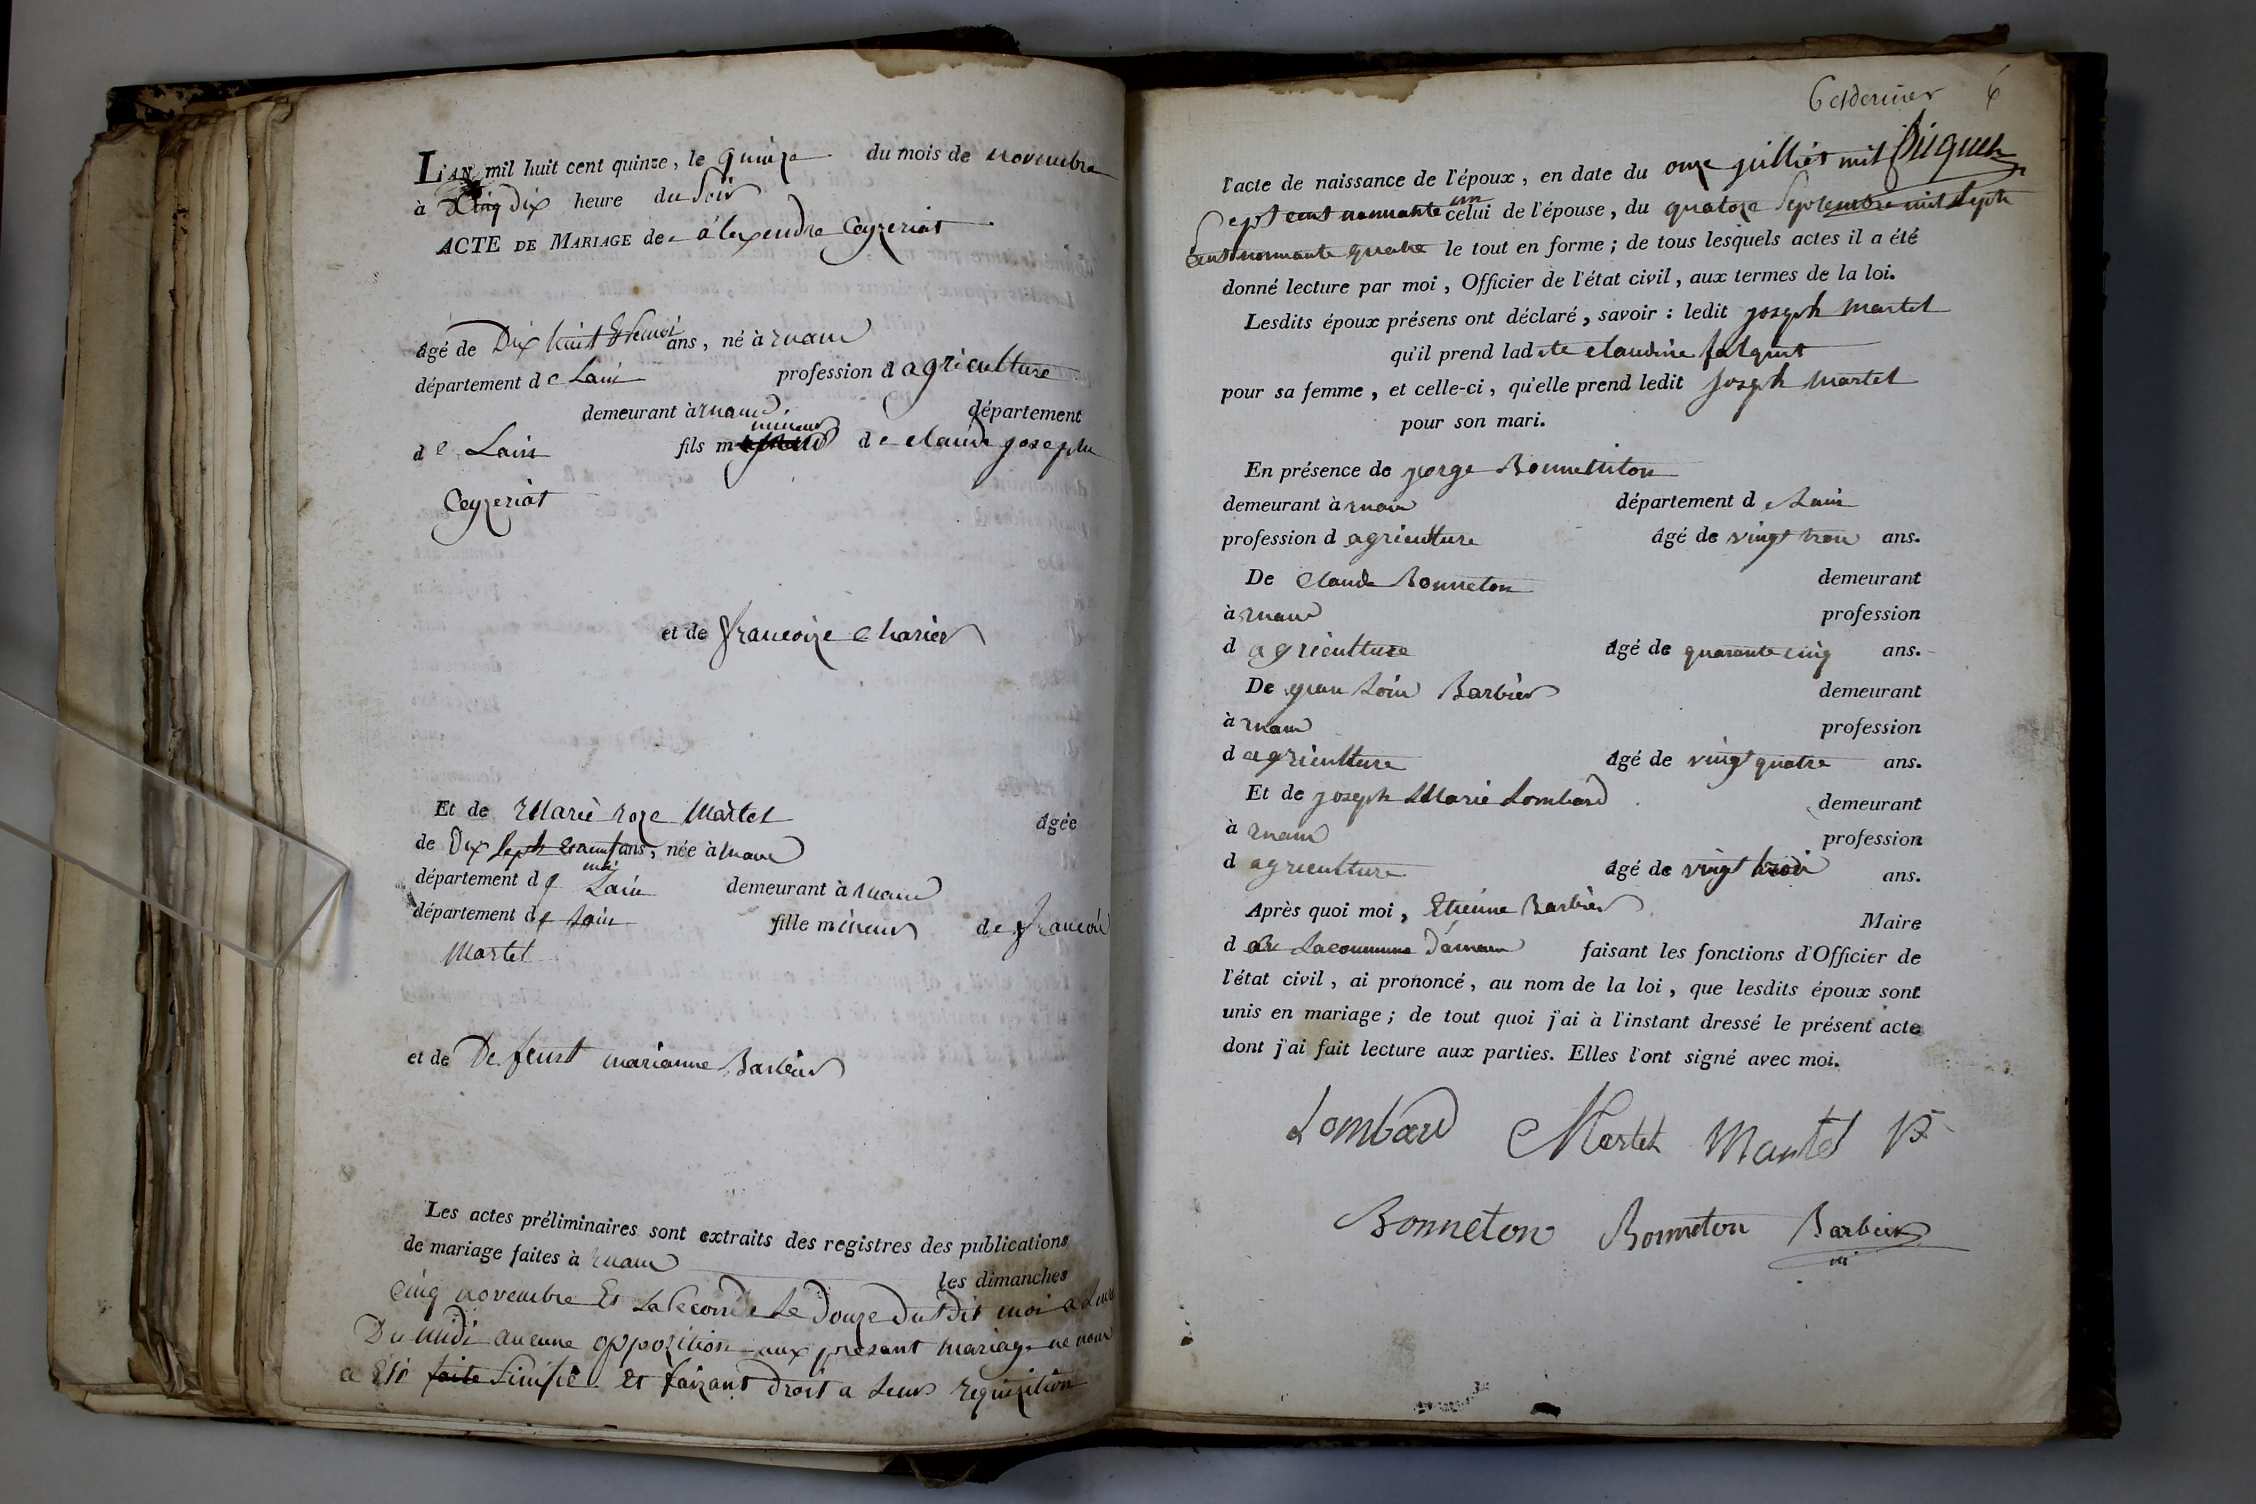 L'AN mil huit cent quinze, le quinze du mois de novembre
à dix heure du Soir
ACTE DE MARIAGE de alexendre Ceyzeriat
âgé de Dix huit ans, né à rnau
département de Lain profession d agriculture
demeurant à rnau département
de Lain fils mineur de claude joseph
Ceyzeriat
et de francoize charier
Et de Marie roze Martel âgée
de Dix Sept ans, née à rnau
moi
département de Lain demeurant à rnau
département de Lain fille mineur de francoi
Martel
et de De feust marianne Barbier
Les actes préliminaires sont extraits des registres des publications
de mariage faites à rnau les dimanches
cinq novembre Et La Seconde Le Douze Dudit moi a
Du midi aucune oppozition aux presant mariage ne nous
a Eté Sinifié Et faizant Droit a Leurs requizition
6 et dernier 6
l'acte de naissance de l'époux, en date du onze juilliet mil
Sept cent nonnante un celui de l'épouse, du quatoze Septembre mil Sept
Cent nonnante quatre le tout en forme; de tous lesquels actes il a été
donné lecture par moi, Officier de l'état civil, aux termes de la loi.
Lesdits époux présens ont déclaré, savoir: ledit joseph martel
qu'il prend ladite claudine falquet
pour sa femme, et celle-ci, qu'elle prend ledit joseph martel
pour son mari.
En présence de jorge
demeurant à rnau département de Lain
profession d agriculture âgé de vingt troi ans.
De claude Bonneton demeurant
à rnau profession
d agriculture âgé de quarante cinq ans.
De Barbier demeurant
à rnau profession
d agriculture âgé de vingt quatre ans.
Et de joseph Marie Lombard demeurant
à rnau profession
d agriculture âgé de vingt troi ans.
Après quoi moi, Etienne Barbier Maire
d Lacommune D'arnau faisant les fonctions d'Officier de
l'état civil, ai prononcé, au nom de la loi, que lesdits époux sont
unis en mariage; de tout quoi j'ai à l'instant dressé le présent acte
dont j'ai fait lecture aux parties. Elles l'ont signé avec moi.
Lombard Martel Martel
Bonneton Bonneton Barbier